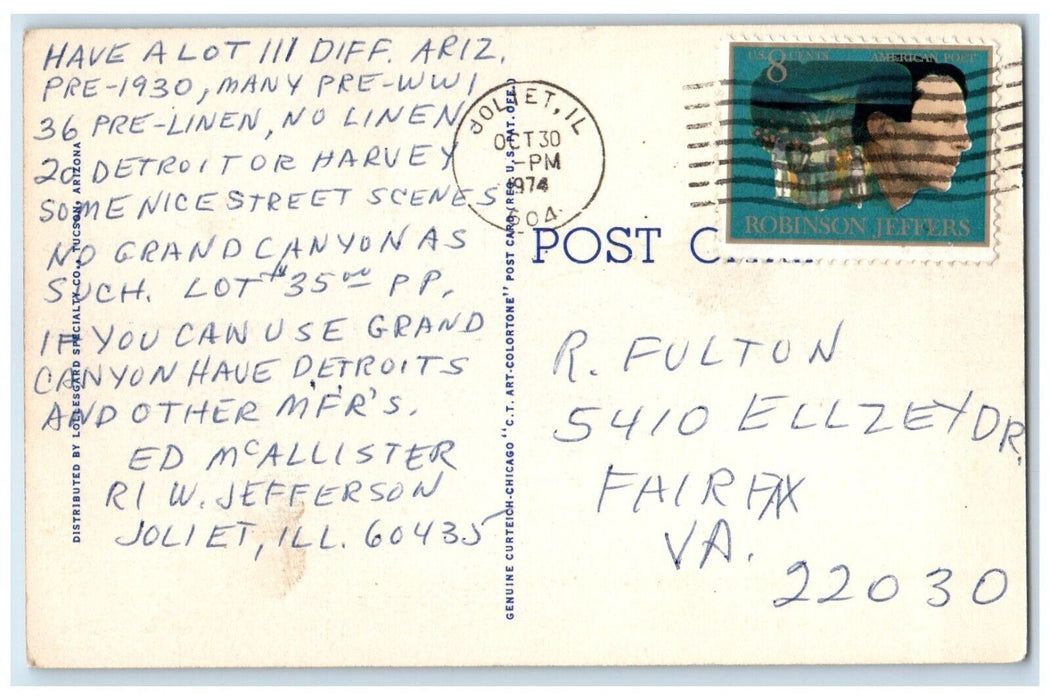 HAVE A LOT 111 DIFF. ARIZ.
PRE-1930, MANY PRE-WW1
36 PRE-LINEN, NO LINEN
20 DETROIT OR HARVEY
SOME NICE STREET SCENES
NO GRAND CANYON AS
SUCH. LOT #35.00 PP.
IF YOU CAN USE GRAND
CANYON HAVE DETROITS
AND OTHER MFR'S.
ED McALLISTER
R1 W. JEFFERSON
JOLIET, ILL. 60435
DISTRIBUTED BY LOLLESGARD SPECIALTY CO., TUCSON, ARIZONA
GENUINE CURTEICH-CHICAGO "C.T. ART-COLORTONE" POST CARD (REG. U.S. PAT. OFF.)
JOLIET, IL
OCT 30
PM
1974
604
U.S. 8 CENTS
AMERICAN POET
ROBINSON JEFFERS
POST CARD
R. FULTON
5410 ELLZEY DR.
FAIRFAX
VA.
22030